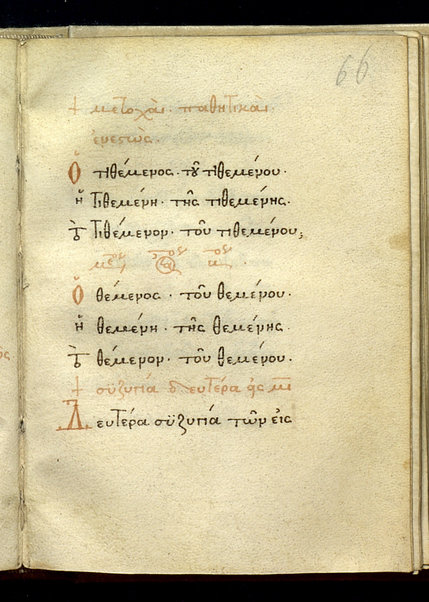 66
+ μετοχαὶ παθητικαὶ
ἐνεστὼς
Ὁ τιθέμενος · τοῦ τιθεμένου ·
ἡ τιθεμένη · τῆς τιθεμένης ·
τὸ τιθέμενον · τοῦ τιθεμένου ;
Ὁ θέμενος · τοῦ θεμένου ·
ἡ θεμένη · τῆς θεμένης
τὸ θέμενον · τοῦ θεμένου ·
+ συζυγία δευτέρα
Δευτέρα συζυγία τῶν εἰς